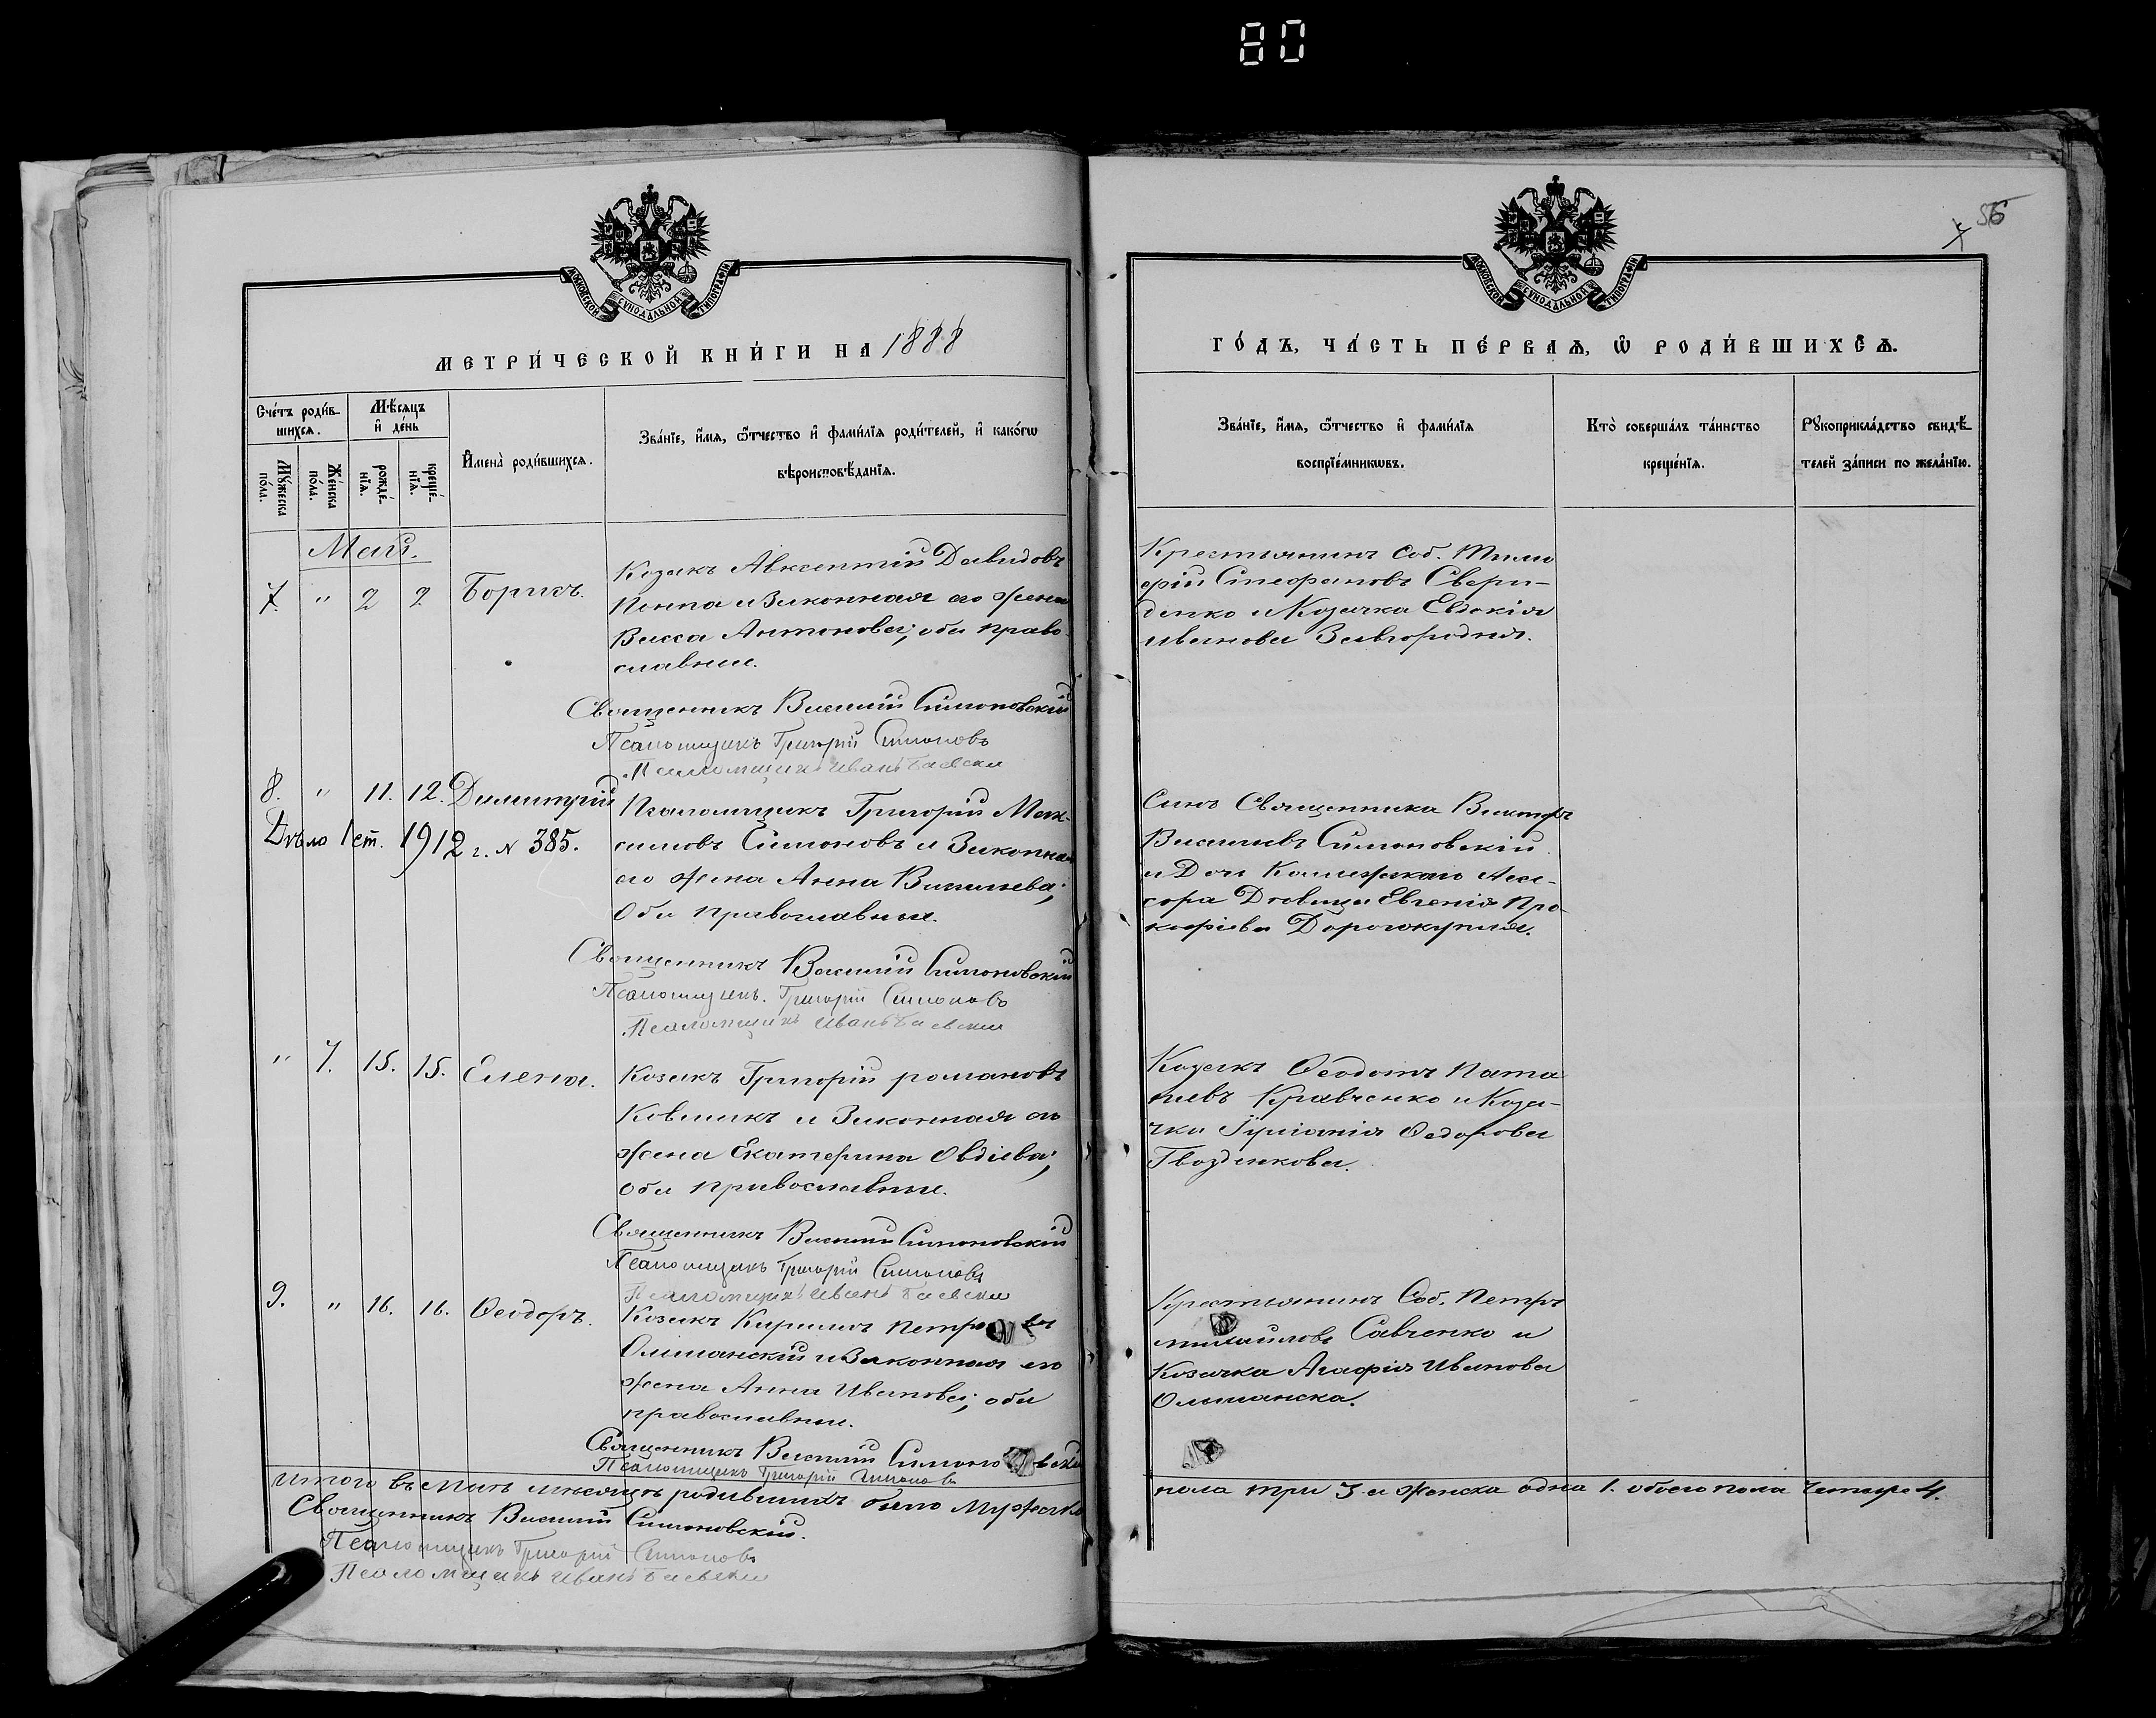 80
56
МОСКОВСКОЙ СѴНОДАЛЬНОЙ ТИПОГРАФІИ
МЕТРИ́ЧЕСКОЙ КНИ́ГИ НА 1888
Сче́тъ роди́вшихсѧ.
Мѣ́сѧцъ и҆ де́нь
Мꙋ́жеска по́ла.
Же́нска по́ла.
рожде́нїѧ.
креще́нїѧ.
И҆мена̀ роди́вшихсѧ.
Зва́нїе, и҆́мѧ, ѻ҆́тчество и҆ фамі́лїѧ роди́телей, и҆ како́гѡ
вѣроисповѣ́данїѧ.
Май.
7. " 2 2 Борисъ.
Козакъ Авксентій Давидовъ
и Законная его жена
Васса Антонова; оба право-
славные.
Священникъ Василій Симоновскій
Псаломщикъ Григорій Симоновъ
Псаломщикъ Иванъ
8. " 11. 12. Димитрій
Дѣло 1 ст. 1912 г. N 385.
Псаломщикъ Григорій Мак-
симовъ Симоновъ и Законная
его жена Анна Васильева;
Оба православные.
Священникъ Василій Симоновскій
Псаломщикъ Григорій Симоновъ
Псаломщикъ Иванъ
" 7. 15. 15. Елена.
Козакъ Григорій романовъ
и Законная его
жена Екатерина Овдіева;
Оба православные.
Священникъ Василій Симоновскій
Псаломщикъ Григорій Симоновъ
Псаломщикъ Иванъ
9. " 16. 16. Ѳеодоръ.
Козакъ Кирилъ Петровъ
Олшанскій и Законная его
жена Анна Иванова; оба
православные.
Священникъ Василій Симоновскій
Псаломщикъ Григорій Симоновъ
Итого въ Маѣ мѣсяцѣ родившихъ было Мужеска
Священникъ Василій Симоновскій.
Псаломщикъ Григорій Симоновъ
Псаломщикъ Иванъ
МОСКОВСКОЙ СѴНОДАЛЬНОЙ ТИПОГРАФІИ
ГО́ДЪ, ЧА́СТЬ ПЕ́РВАѦ, Ѡ҆ РОДИ́ВШИХСѦ.
Зва́нїе, и҆́мѧ, ѻ҆́тчество и҆ фамі́лїѧ
воспрїе́мникѡвъ.
Кто̀ соверша́лъ та́инство
креще́нїѧ.
Рꙋкоприкла́дство свидѣ́-
телей за́писи по жела́нїю.
Крестьянинъ Соб. Тимо
фій Стефановъ Свери-
денко и Козачка Евдокія
иванова Завгородня.
Сынъ Священника Викторъ
Васильевъ Симоновскій
и Дочь Коллежскаго Асес-
сора Дѣвица Евгенія Про-
кофіева Дорогокупля.
Козакъ Ѳеодотъ
Кравченко и Коза-
чка Іуліанія Ѳедорова
Гвоздикова.
Крестьянинъ Соб. Петръ
михаиловъ Савченко и
Козачка Агафія Иванова
Олшанска.
пола три 3. и женска одна 1. обоего пола Четыре 4.